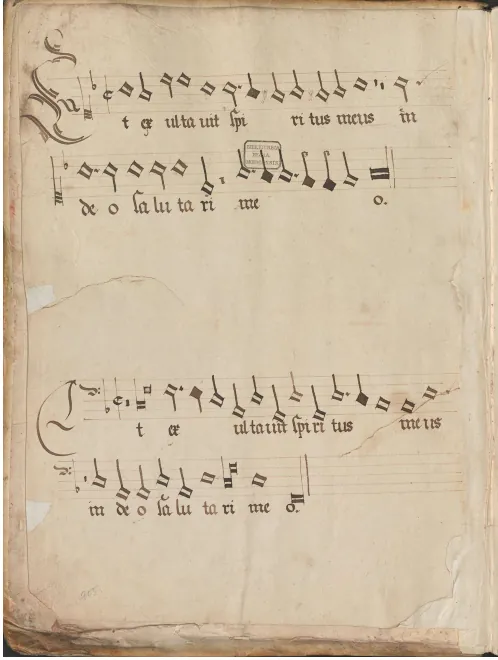 Et ex ulta uit spi ri tus meus in
de o sa lu ta ri me o.
Et ex ul ta uit spi ri tus me us
in de o sa lu ta ri me o.